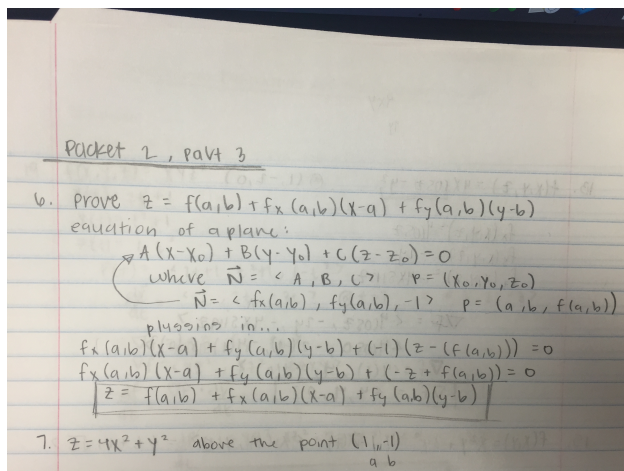 Packet 2, Part 3
6. Prove z = f(a,b) + fx (a,b)(x-a) + fy(a,b)(y-b)
equation of a plane:
A(x-x₀) + B(y-y₀) + C(z-z₀) = 0
where N⃗ = <A, B, C> P = (x₀, y₀, z₀)
N⃗ = <fx(a,b), fy(a,b), -1> P = (a, b, f(a,b))
plugging in...
fx(a,b)(x-a) + fy(a,b)(y-b) + (-1)(z-(f(a,b))) = 0
fx(a,b)(x-a) + fy(a,b)(y-b) + (-z + f(a,b)) = 0
z = f(a,b) + fx(a,b)(x-a) + fy(a,b)(y-b)
7. z = 4x² + y² above the point (1,-1)
a b